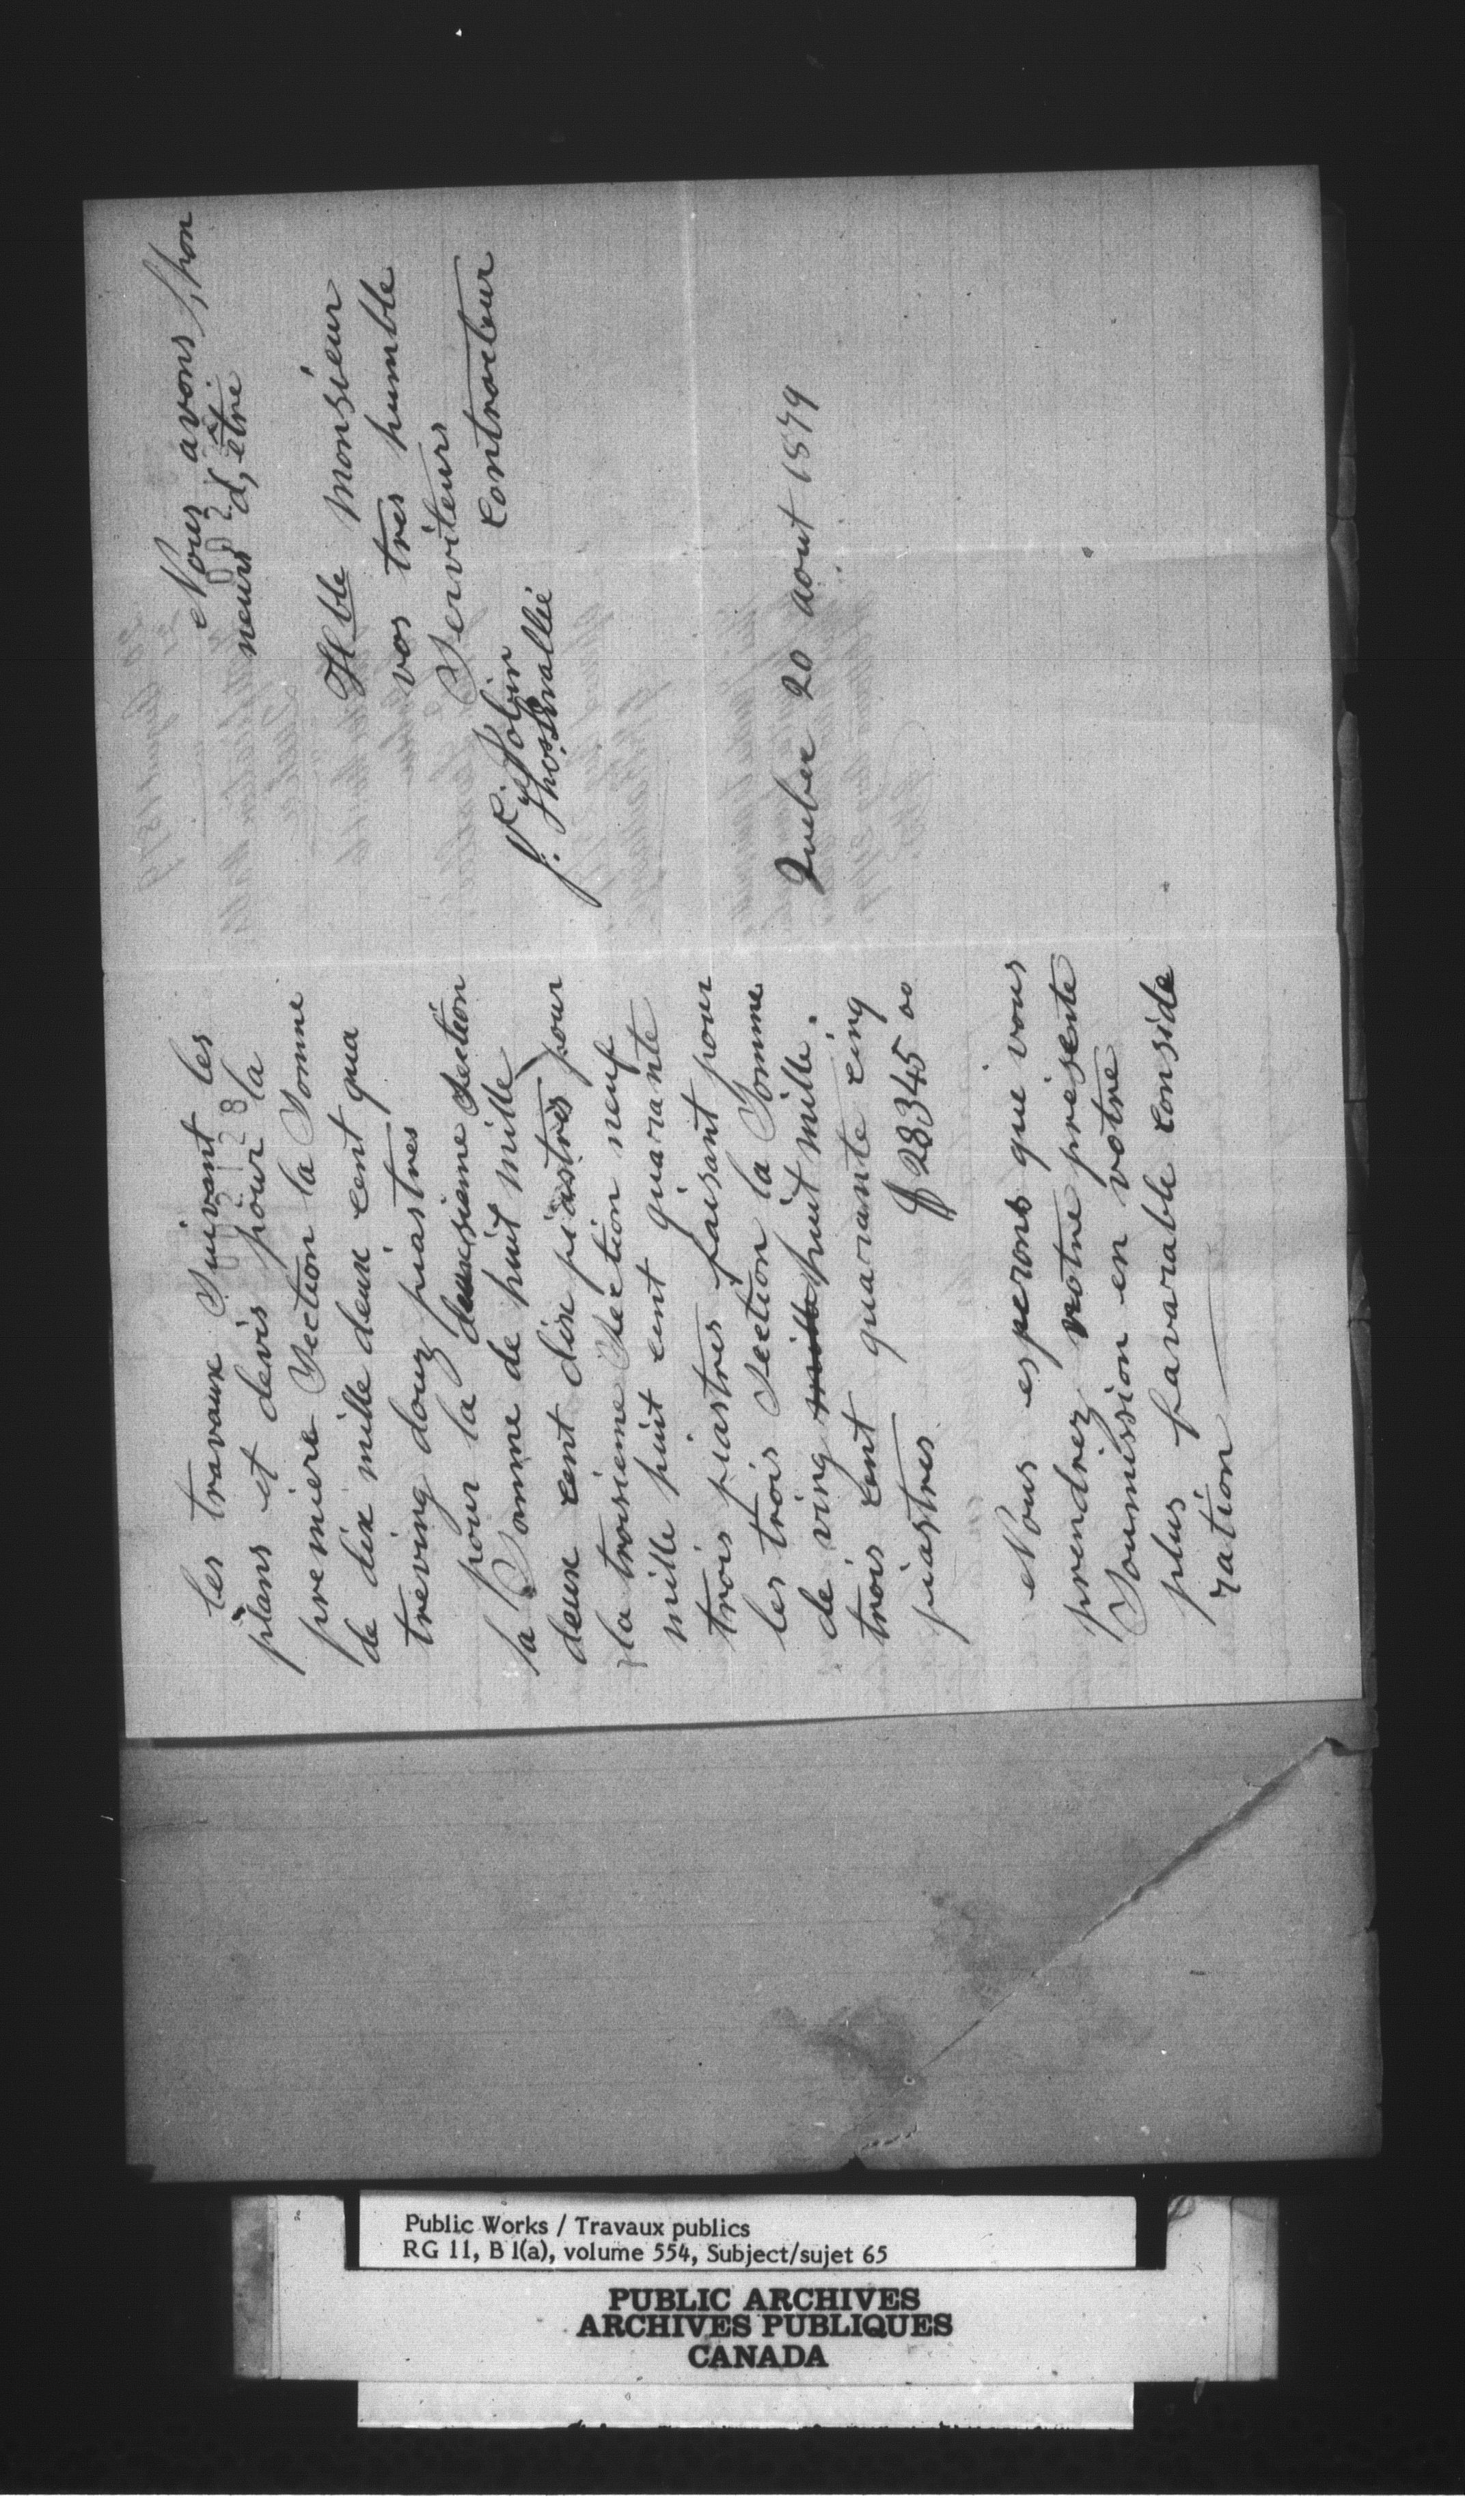 les travaux Suivant les
plans et devis pour la
premiere Section la Somme
de dix mille deux cent qua
treving douz piastres
pour la deuxsieme Section
la Somme de huit mille
deux cent dix piastres pour
la troisieme Section neuf
mille huit cent quarante
trois piastres faisant pour
les trois Section la Somme
de ving huit mille
trois cent quarante cinq
piastres $28345 00
Nous esperons que vous
prendrez notre présente
Soumission en votre
plus favarable conside
ration
Nous avons l,hon
neur d,être
Hble monsieur
vos tres humble
Serviteurs
contracteur
Quebec 20 aout 1879
Public Works / Travaux publics
RG 11, B 1(a), volume 554, Subject/sujet 65
PUBLIC ARCHIVES
ARCHIVES PUBLIQUES
CANADA